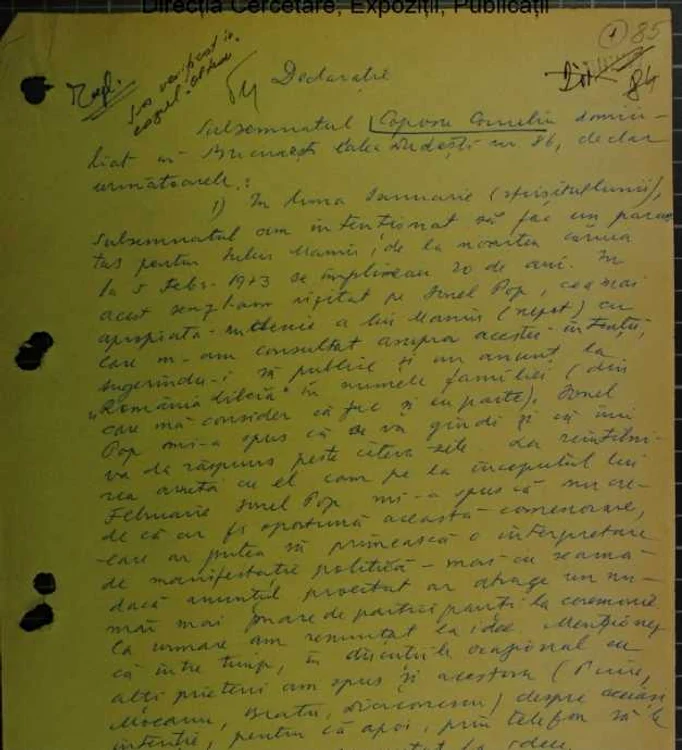 Direcția Cercetare, Expoziții, Publicații
1 85
84
Declarație
Subsemnatul Coposu Corneliu domici-
liat in București Calea Dudești nr. 86, declar
următoarele:
1) In luna Ianuarie (sfirșitul lunii),
subsemnatul am intenționat să fac un paras
tas pentru Iuliu Maniu, de la moartea căruia
la 5 Febr. 1973 se împlineau 20 de ani. In
acest sens l-am vizitat pe Ionel Pop, cea mai
apropiată rudenie a lui Maniu (nepot) cu
care m-am consultat asupra acestei intenții,
sugerindu-i să publice și un anunt la
„România liberă" în numele familiei (din
care mă consider că fac și eu parte). Ionel
Pop mi-a spus că se va gîndi și că îmi
va da răspuns peste citeva zile. La reintilni-
rea cu el cam pe la începutul lui
Februarie Ionel Pop mi-a spus că nu cre-
de că ar fi oportună această comemorare,
care ar putea să primească o interpretare
de manifestație politică - mai cu seamă
dacă anunțul proiectat ar atrage un nu-
măr mai mare de participanți la ceremonie.
Ca urmare am renunțat la idee. Menționez
că intre timp, în discuțiile ocazional cu
alți prieteni am spus și acestora (
Mocanu, Bratu, Diaconescu) despre această
intenție, pentru că apoi, prin telefon să le
idee